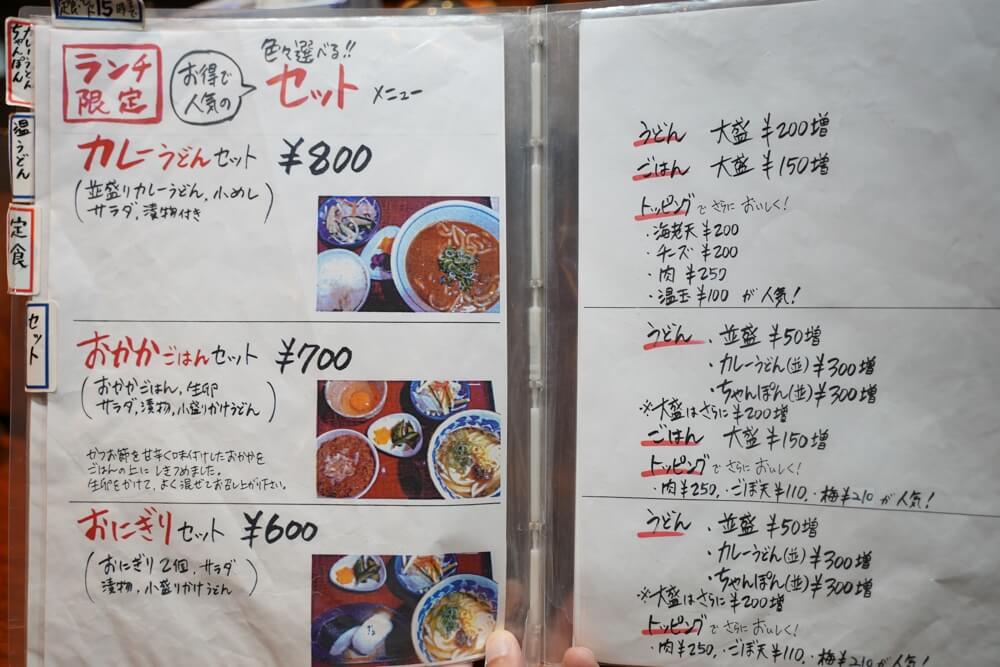 定食・セット15時まで
カレーうどん
ちゃんぽん
温うどん
定食
セット
ランチ
限定
お得で
人気の
色々選べる!!
セット メニュー
カレーうどんセット ¥800
(並盛りカレーうどん,小めし
サラダ,漬物付き)
おかかごはんセット ¥700
(おかかごはん,生卵
サラダ,漬物,小盛りかけうどん)
かつお節を甘辛く味付けしたおかかを
ごはんの上にしきつめました。
生卵をかけて、よく混ぜてお召し上がり下さい。
おにぎりセット ¥600
(おにぎり2個,サラダ
漬物,小盛りかけうどん)
うどん 大盛¥200増
ごはん 大盛¥150増
トッピングでさらにおいしく!
・海老天¥200
・チーズ¥200
・肉¥250
・温玉¥100が人気!
うどん・並盛¥50増
・カレーうどん(並)¥300増
・ちゃんぽん(並)¥300増
※大盛はさらに¥200増
ごはん 大盛¥150増
トッピングでさらにおいしく!
・肉¥250,・ごぼ天¥110,・梅¥210が人気!
うどん・並盛¥50増
・カレーうどん(並)¥300増
・ちゃんぽん(並)¥300増
※大盛はさらに¥200増
トッピングでさらにおいしく!
・肉¥250,・ごぼ天¥110,・梅¥210が人気!